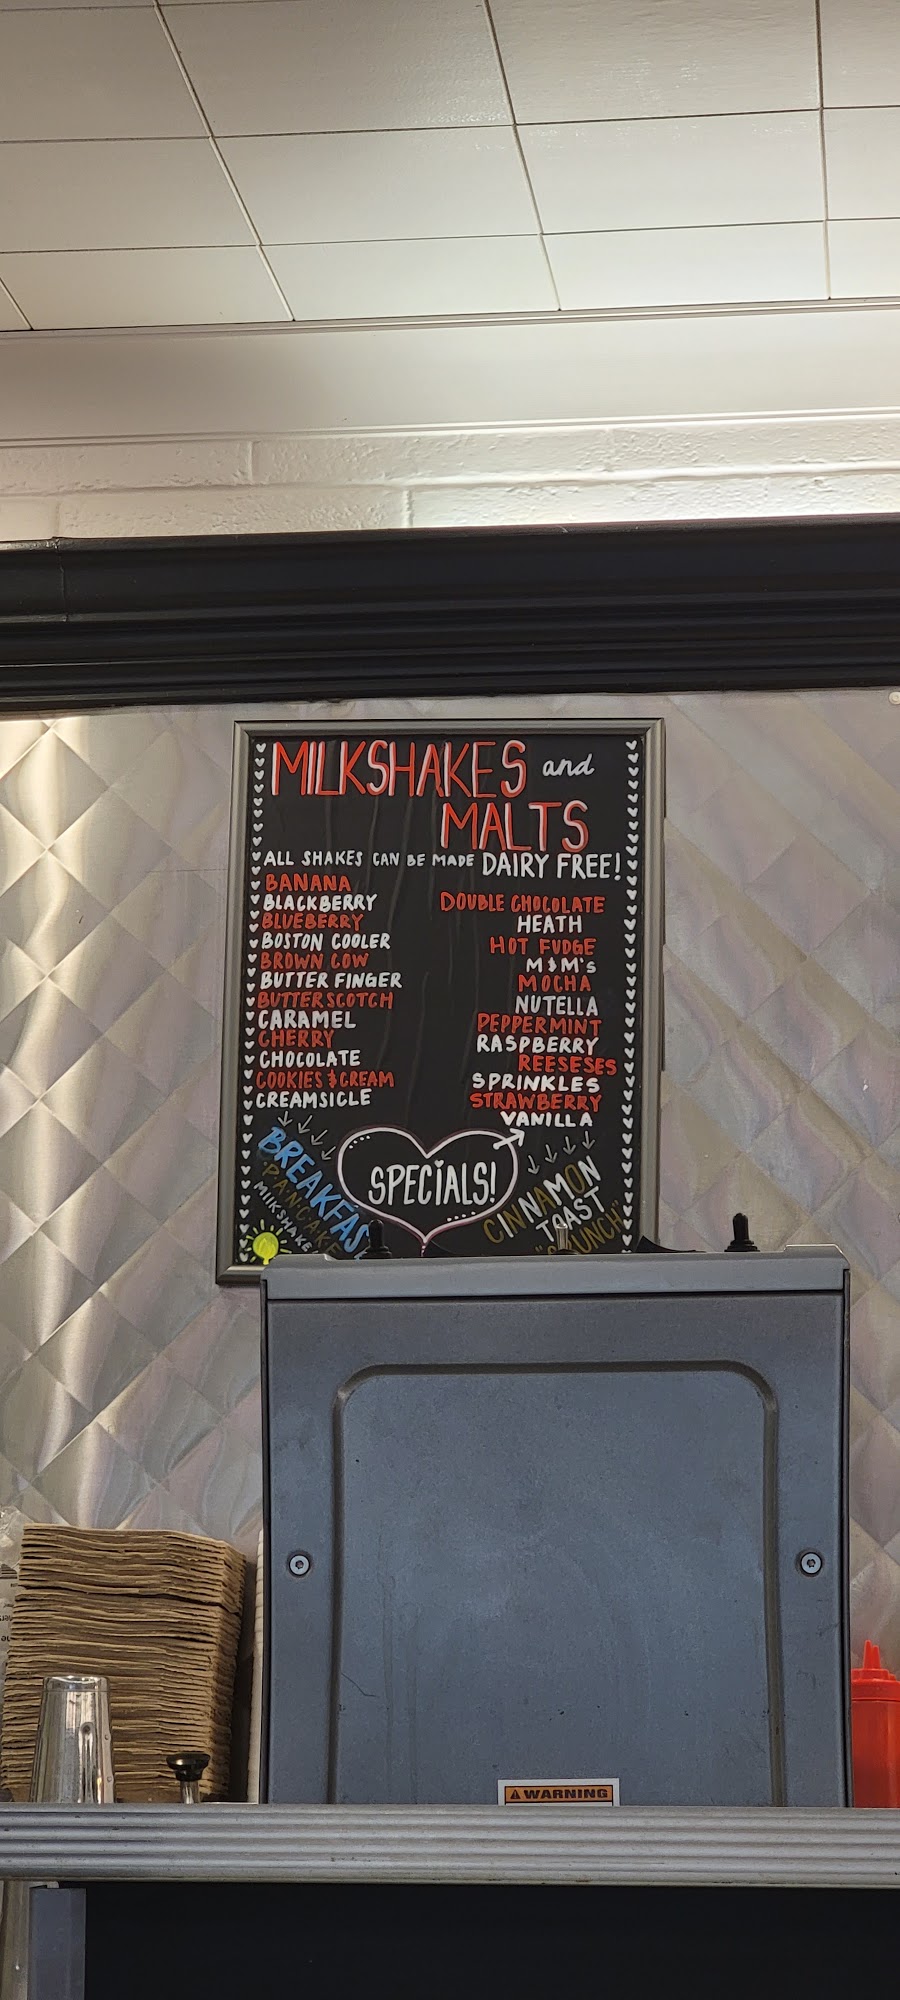 MILKSHAKES and
MALTS
ALL SHAKES CAN BE MADE DAIRY FREE!
BANANA
BLACKBERRY
BLUEBERRY
BOSTON COOLER
BROWN COW
BUTTER FINGER
BUTTERSCOTCH
CARAMEL
CHERRY
CHOCOLATE
COOKIES & CREAM
CREAMSICLE
DOUBLE CHOCOLATE
HEATH
HOT FUDGE
M&M's
MOCHA
NUTELLA
PEPPERMINT
RASPBERRY
REESESES
SPRINKLES
STRAWBERRY
VANILLA
BREAKFAS
PANCAKE
MILKSHAKE
SPECIALS!
CINNAMON
TOAST
WARNING